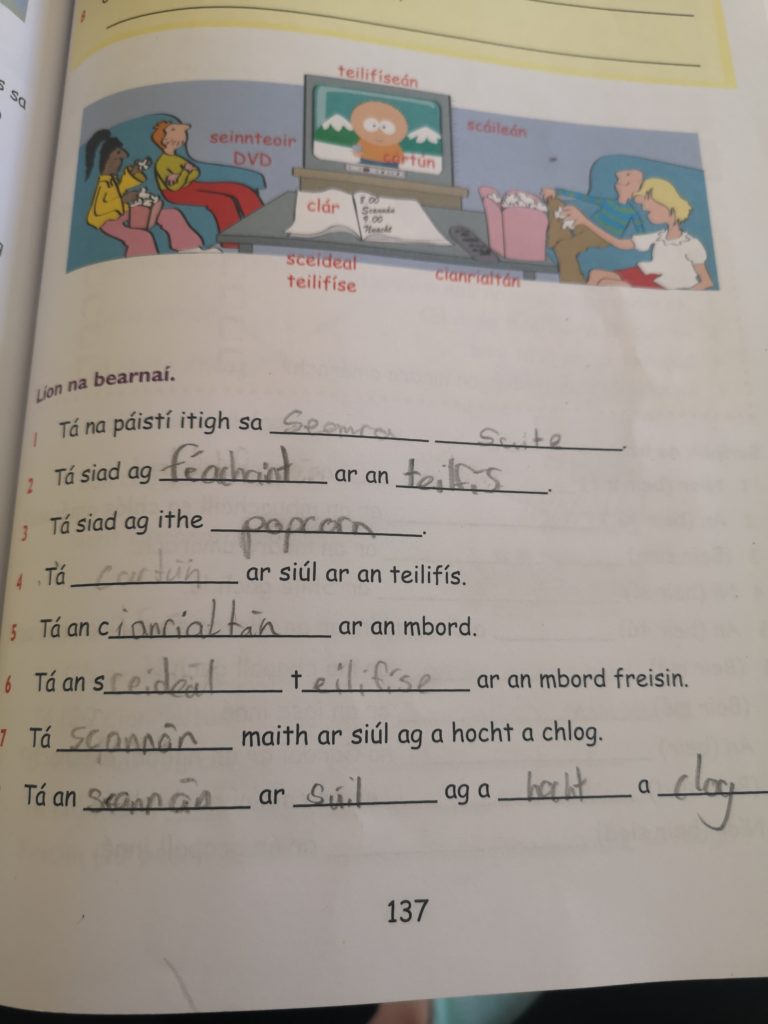 teilifíseán
seinnteoir
DVD
scáileán
cartún
clár
8.00
Scannán
9.00
Nuacht
sceideal
teilifíse
cianrialtán
Líon na bearnaí.
1 Tá na páistí itigh sa Seomra Suite.
2 Tá siad ag féachaint ar an teilfís.
3 Tá siad ag ithe popcorn.
4 Tá cartún ar siúl ar an teilifís.
5 Tá an cianrialtán ar an mbord.
6 Tá an sceideál teilifíse ar an mbord freisin.
7 Tá scannán maith ar siúl ag a hocht a chlog.
Tá an scannán ar Súil ag a hocht a clog
137